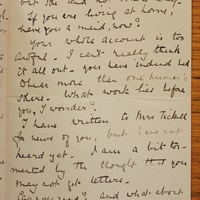 but the
If you are living at home,
have you a maid, now?
Your whole account is too
awful. I can't really think
it all out - you have indeed had
more than one human's
share. What work lies before
you, I wonder?
I have written to Mrs Tickell
for news of you, but have not
heard yet. I am a bit tor-
mented by the thought that you
may not get letters.
and what about